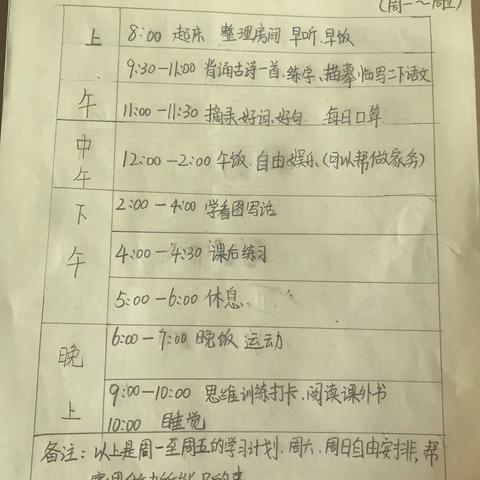 (周一～周五)
上午
8:00 起床 整理房间 早听、早饭
9:30-11:00 背诵古诗一首、练字、描摹临写二下语文
11:00-11:30 摘录好词、好句 每日口算
中午
12:00-2:00 午饭、自由娱乐(可以帮做家务)
下午
2:00-4:00 学看图写话
4:00-4:30 课后练习
5:00-6:00 休息
晚上
6:00-7:00 晚饭 运动
9:00-10:00 思维训练打卡、阅读课外书
10:00 睡觉
备注:以上是周一至周五的学习计划,周六、周日自由安排,帮